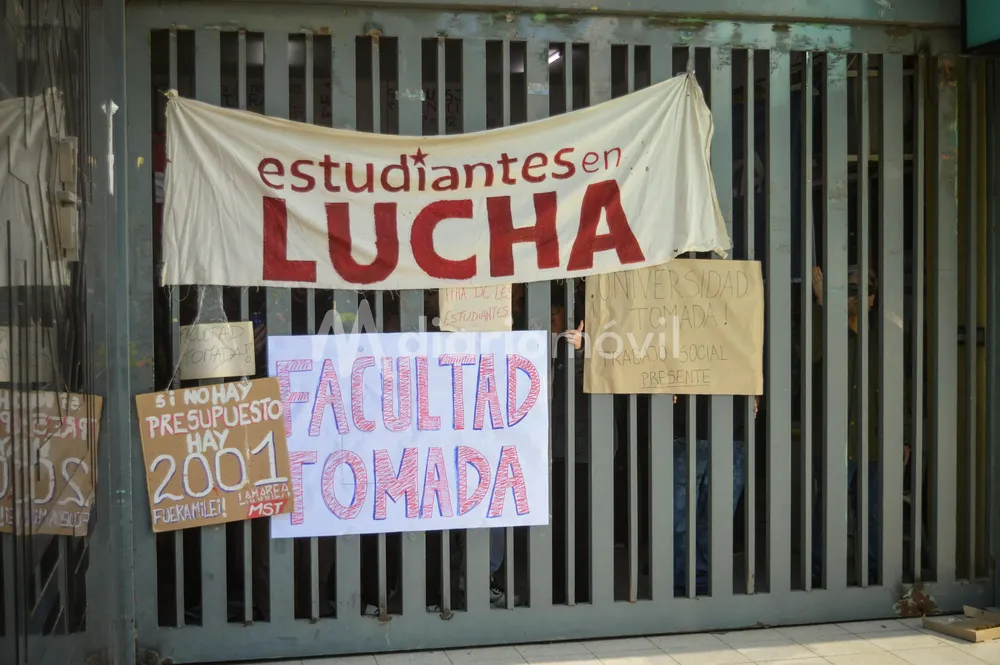 estudiantes en
LUCHA
UNIVERSIDAD
TOMADA!
TRABAJO SOCIAL
PRESENTE
DE LES
ESTUDIANTES
FACULTAD
TOMADA!
FACULTAD
TOMADA
SI NO HAY
PRESUPUESTO
HAY
2001
FUERA MILEI!
LA MAREA
MST
diariomóvil